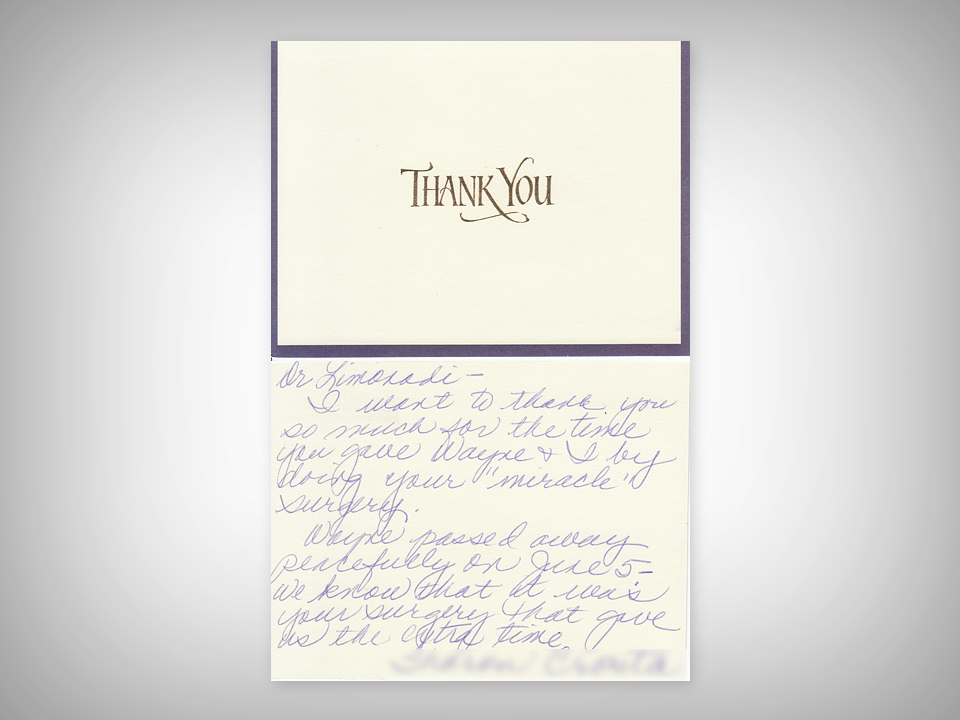 THANK YOU
Dr Limonadi –
I want to thank you
so much for the time
you gave Wayne & I by
doing your "miracle"
surgery.
Wayne passed away
peacefully on June 5 –
We know that it was
your surgery that gave
us the extra time.